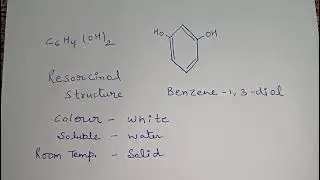 C6H4(OH)2
HO OH
Resorcinol
Structure Benzene-1,3-diol
Colour - white
Soluble - water
Room Temp. - Solid